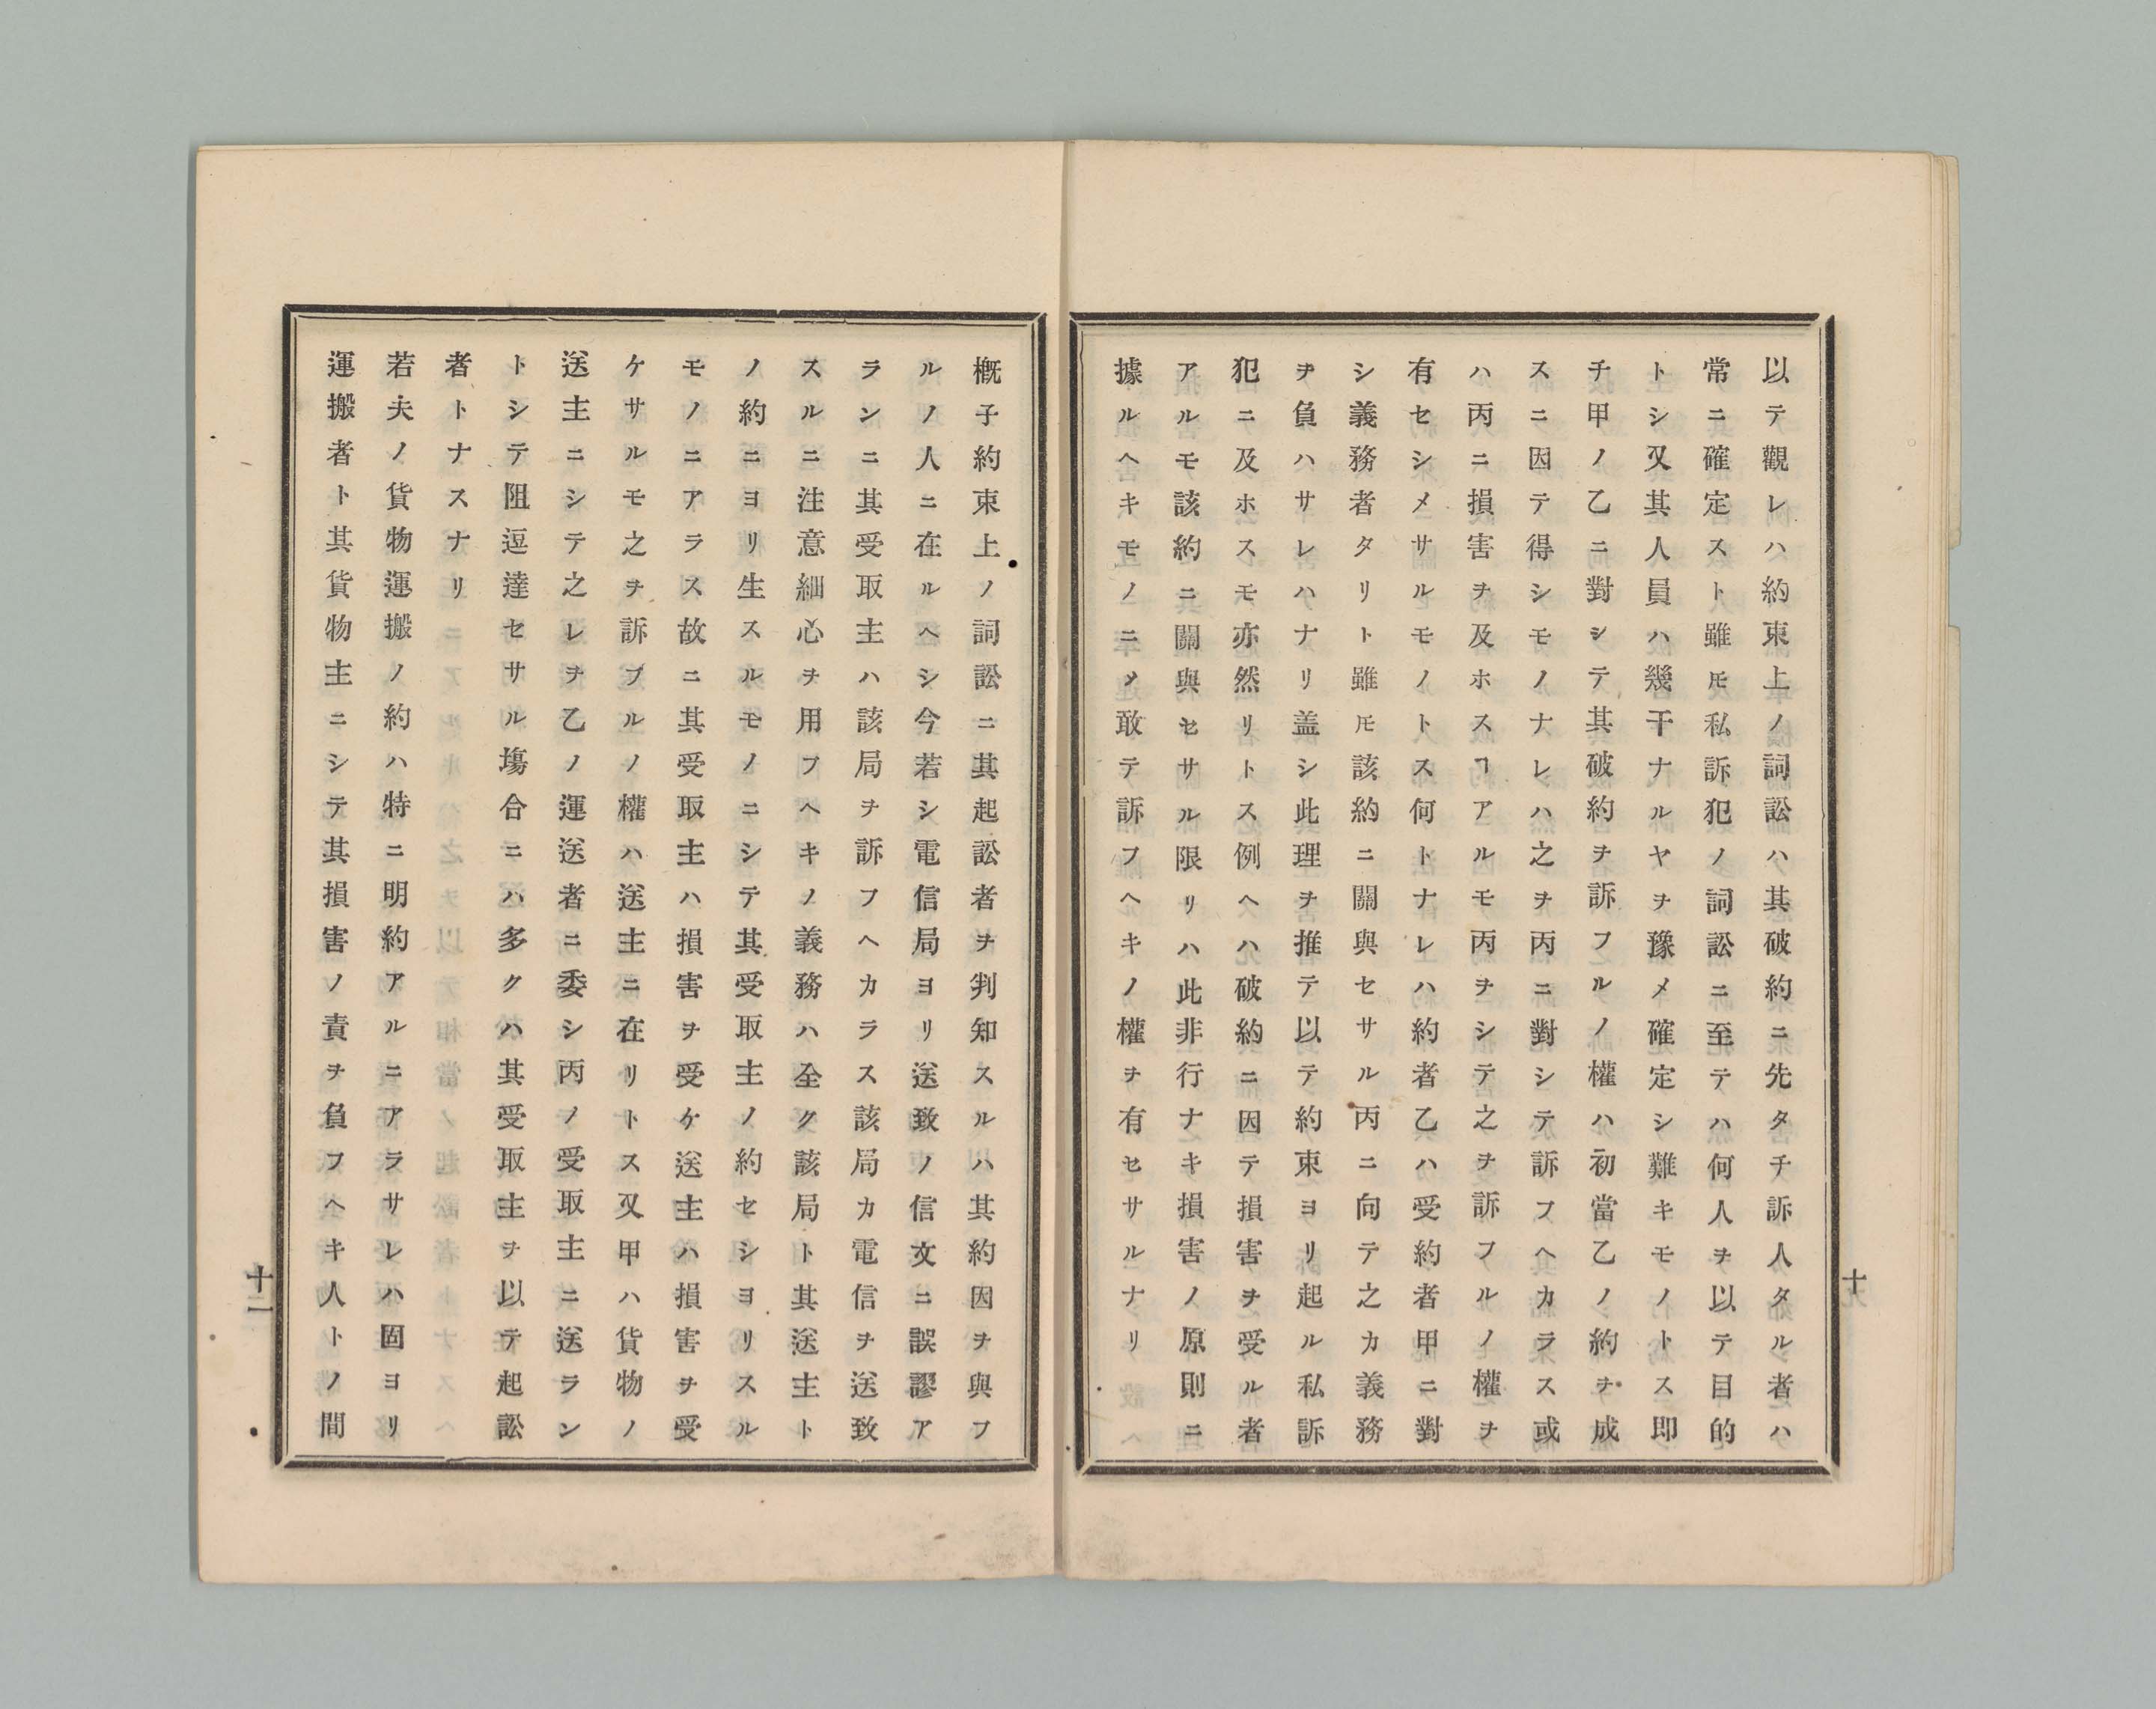 以テ觀レハ約束上ノ詞訟ハ其破約ニ先タチ訴人タル者ハ
常ニ確定スト雖モ私訴犯ノ詞訟ニ至テハ何人ヲ以テ目的
トシ又其人員ハ幾干ナルヤヲ豫メ確定シ難キモノトス即
チ甲ノ乙ニ對シテ其破約ヲ訴フルノ權ハ初當乙ノ約ヲ成
スニ因テ得シモノナレハ之ヲ丙ニ對シテ訴フヘカラス或
ハ丙ニ損害ヲ及ホスヿアルモ丙ヲシテ之ヲ訴フルノ權ヲ
有セシメサルモノトス何トナレハ約者乙ハ受約者甲ニ對
シ義務者タリト雖モ該約ニ關與セサル丙ニ向テ之カ義務
ヲ負ハサレハナリ盖シ此理ヲ推テ以テ約束ヨリ起ル私訴
犯ニ及ホスモ亦然リトス例ヘハ破約ニ因テ損害ヲ受ル者
アルモ該約ニ關與セサル限リハ此非行ナキ損害ノ原則ニ
據ルヘキモノニメ敢テ訴フヘキノ權ヲ有セサルナリ
十
概子約束上ノ詞訟ニ其起訟者ヲ判知スルハ其約因ヲ與フ
ルノ人ニ在ルヘシ今若シ電信局ヨリ送致ノ信文ニ誤謬ア
ランニ其受取主ハ該局ヲ訴フヘカラス該局カ電信ヲ送致
スルニ注意細心ヲ用フヘキノ義務ハ全ク該局ト其送主ト
ノ約ニヨリ生スルモノニシテ其受取主ノ約セシヨリスル
モノニアラス故ニ其受取主ハ損害ヲ受ケ送主ハ損害ヲ受
ケサルモ之ヲ訴フルノ權ハ送主ニ在リトス又甲ハ貨物ノ
送主ニシテ之レヲ乙ノ運送者ニ委シ丙ノ受取主ニ送ラン
トシテ阻逗達セサル塲合ニハ多クハ其受取主ヲ以テ起訟
者トナスナリ
若夫ノ貨物運搬ノ約ハ特ニ明約アルニアラサレハ固ヨリ
運搬者ト其貨物主ニシテ其損害ノ責ヲ負フヘキ人トノ間
十二